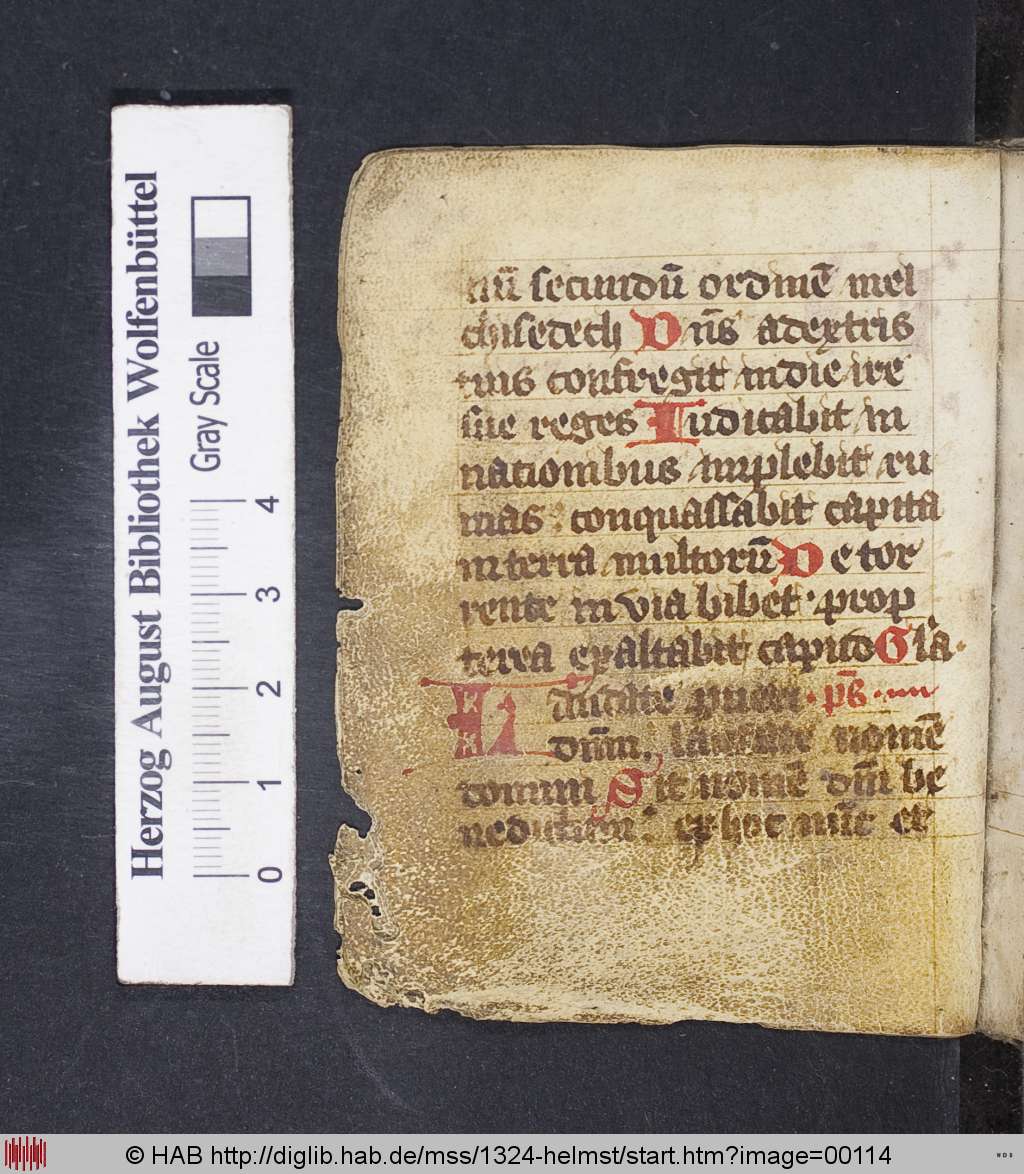 nū secundū ordinē mel
chisedech Dn̄s adextris
tuis confregit indie ire
sue reges Iudicabit in
nacionibus implebit ru
inas : conquassabit capita
interra multorū De tor
rente in via bibet · prop
terea exaltabit capud Gła ·
Laudate pueri · ps · 
dnm̄, laudate nomē
domini Sit nomē dn̄i be
nedictum : ex hoc nūc et
Herzog August Bibliothek Wolfenbüttel
Gray Scale
0 1 2 3 4
© HAB http://diglib.hab.de/mss/1324-helmst/start.htm?image=00114